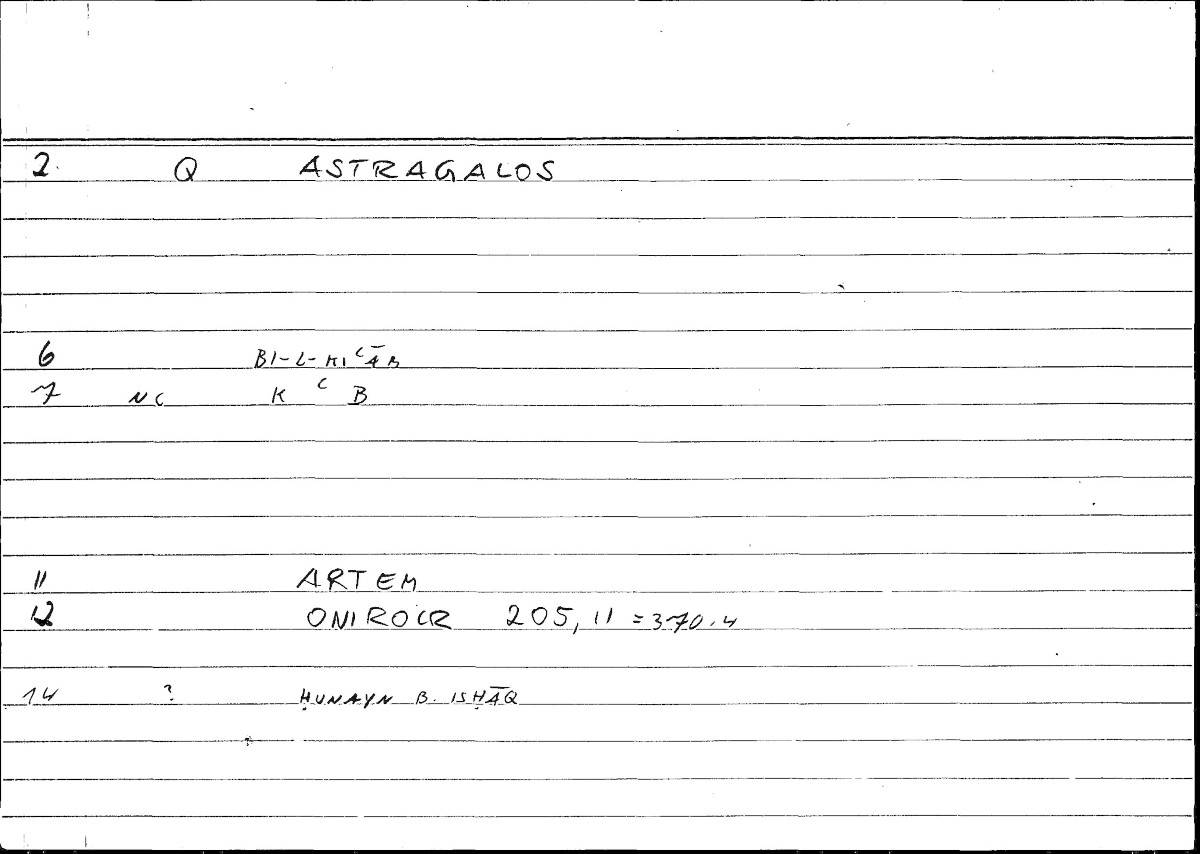 2. Q ASTRAGALOS
6 BI-L-KIʿĀB
7 NC K ʿ B
11 ARTEM
12 ONIROCR 205,11 =370.4
14 ? ḤUNAYN B. ISḤĀQ